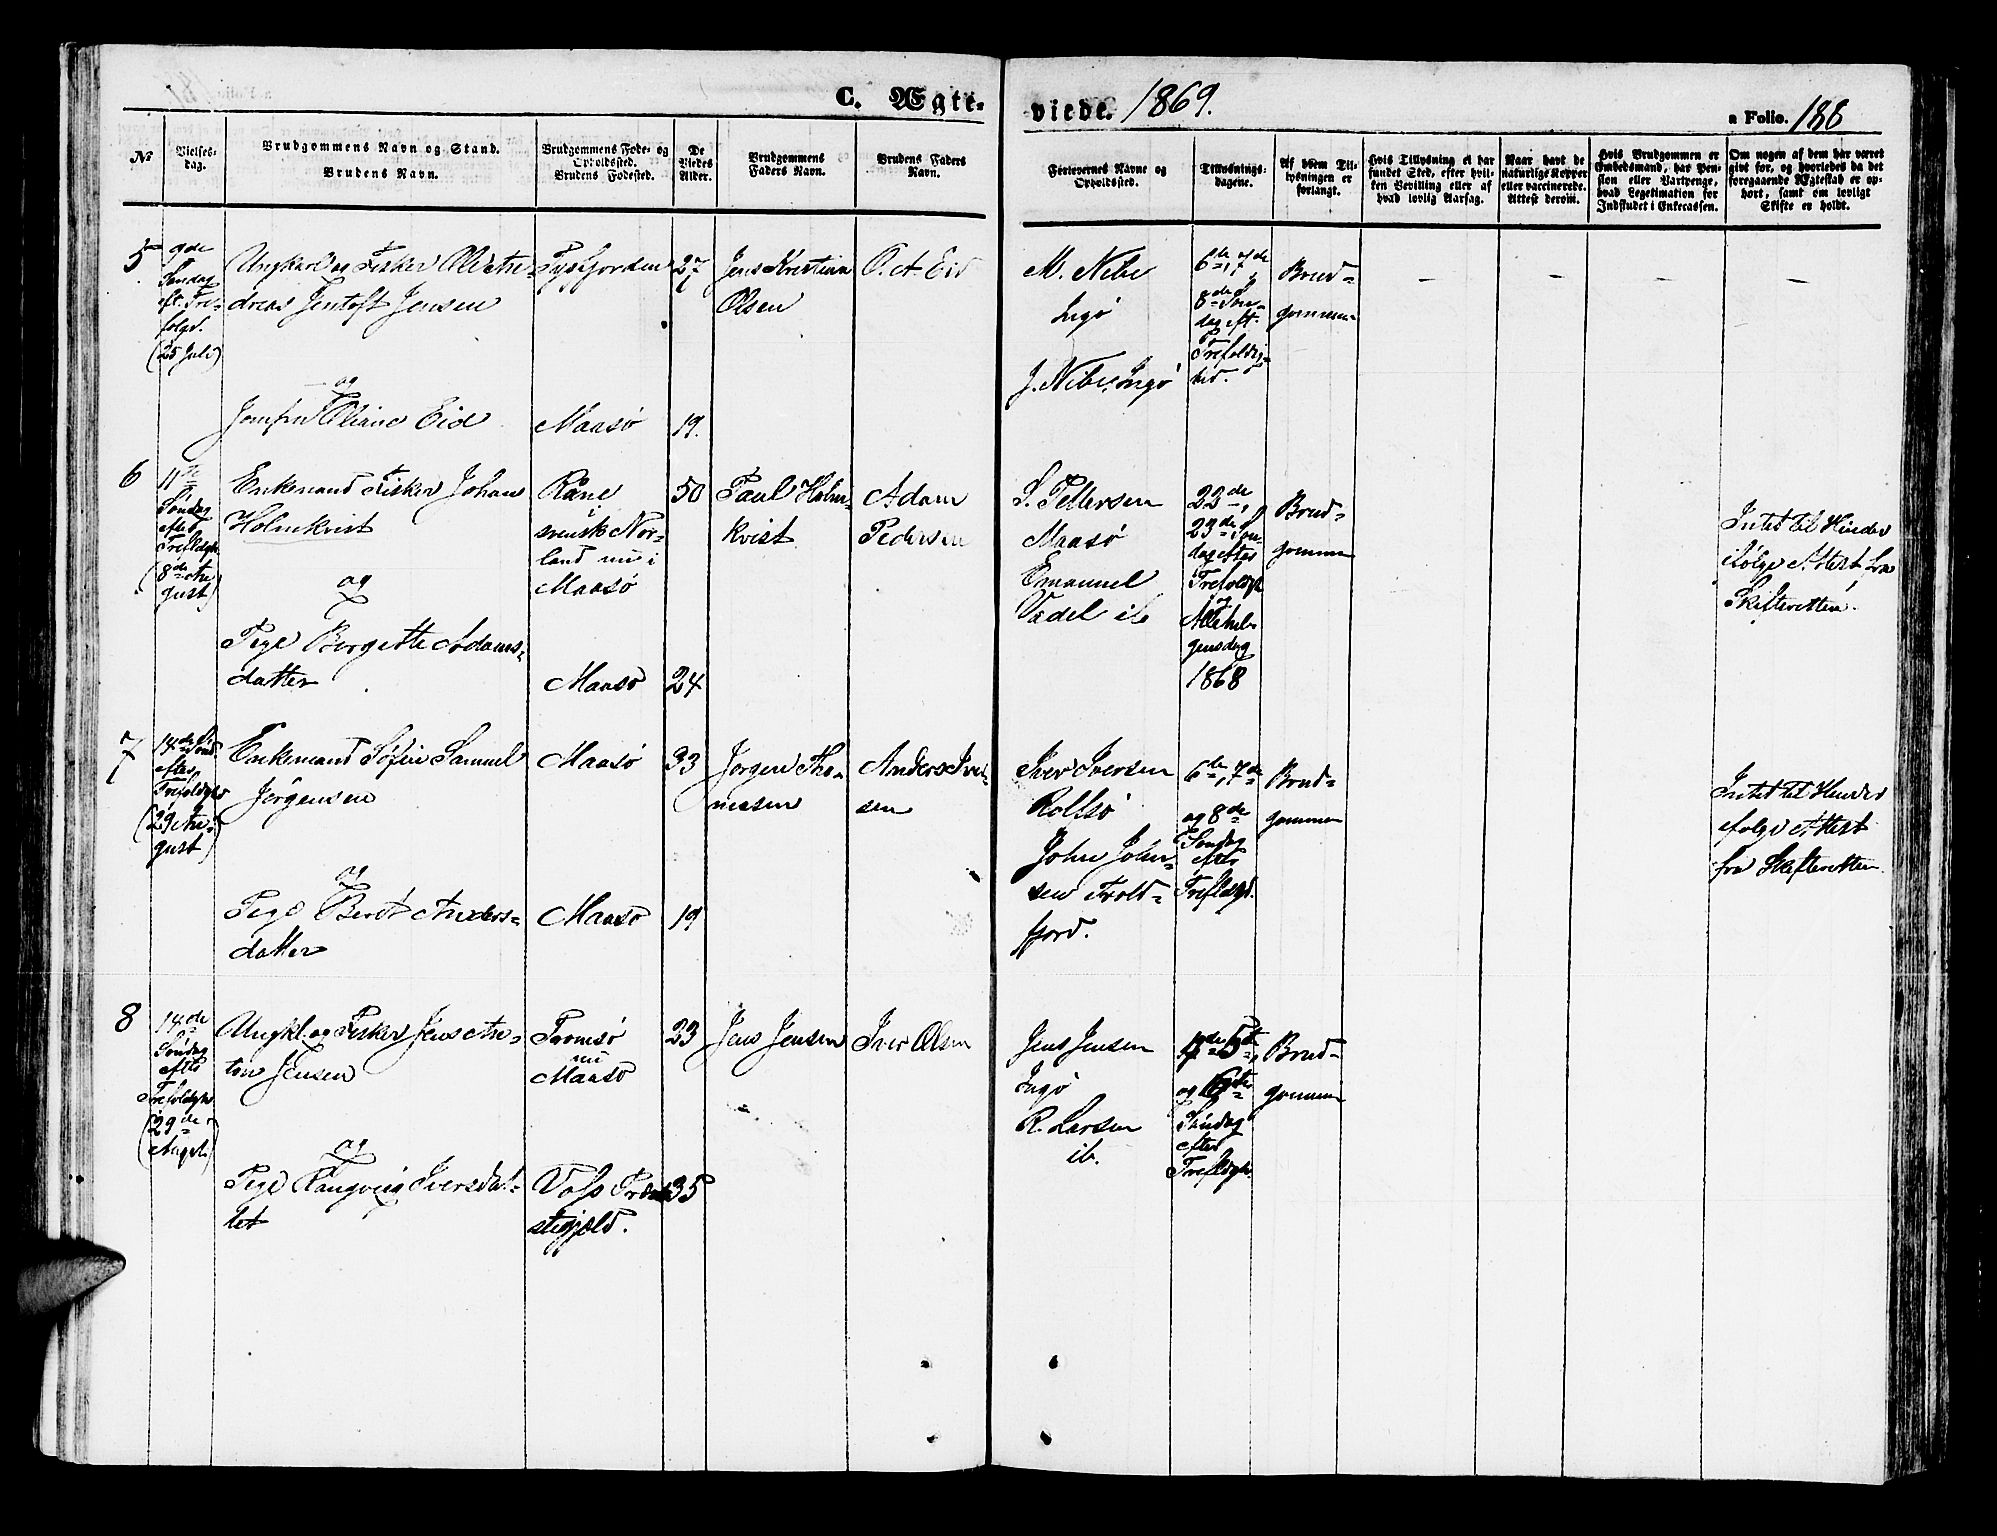 C. Ægte-
viede. 1869.
a Folio. 188
No
Vielses-
dag.
Brudgommens Navn og Stand.
Brudens Navn.
Brudgommens Føde- og
Opholdssted.
Brudens Fødested.
De
Viedes
Alder.
Brudgommens
Faders Navn.
Brudens Faders
Navn.
Forlovernes Navne og
Opholdssted.
Tillysnings-
dagene.
Af hvem Til-
lysningen er
forlangt.
Hvis Tillysning ei har
fundet Sted, efter hvil-
ken Bevilling eller af
hvad lovlig Aarsag.
Naar havt de
naturlige Kopper
eller vaccinerede.
Attest derom.
Hvis Brudgommen er
Embedsmand, har Pen-
sion eller Vartpenge,
hvad Legitimation for
Indskudet i Enkecassen.
Om nogen af dem har været
gift før, og hvorledes da det
foregaaende Ægteskab er op-
hørt, samt om lovligt
Skifte er holdt.
5
9de
Søndag
eft. Tre-
foldgd.
(25 Juli)
Ungkarl og Fisker Ole An-
dreas Jentoft Jensen
og
Jomfru Eliane Eid
Tysfjorden
Maasø
27
19.
Jens Kristian
Olsen
O. A. Eid
M. Nibe
Ingø
J. Nibe, Ingø
6de, 7de
8de Søn-
dag eft.
Trefoldig-
hed.
Brud-
gommen
6
11te
Søndag
efter
Trefoldgh.
(8de Au
gust)
Enkemand Fisker Johan
Holmkvist
og
Pige Borgette Adams-
datter
Råne
i
svensk Nor-
land nu i
Maasø
Maasø
50
24
Paul Holm-
kvist
Adam
Pedersen
S. Pettersen
Maasø
Emanuel
Vadel ib
22de,
23de Søn-
dag efter
Trefoldgh
og
Allehel-
gensdag
1868
Brud-
gommen
Intet til Hinder
ifølge Attest fra
Skifteretten.
7
14de Sønd.
efter
Trefoldghd
(29 Au-
gust)
Enkemand Søfin Samuel
Jørgensen
og
Pige Berit Anders-
datter
Maasø
Maasø
33
19
Jørgen Tho-
mesen
Anders Iver-
sen
Iver Iversen
Rolfsø
John John-
sen Trold-
fjord.
6te, 7de
og 8de
Søndag
efter
Trefldgd.
Brud-
gommen
Intet til Hinder
ifølge Attest
fra Skifteretten
8
14de
Søndag
efter
Trefoldgh.
(29de
Augst.)
Ungkl. og Fisker Jens An-
ton Jensen
og
Pige Rangveig Iversdat-
ter
Tromsø
nu
Maasø
Voss Præ-
stegjeld.
23
35
Jens Jensen
Iver Olsen
Jens Jensen
Ingø
R. Larsen
ib.
4de 5te,
og 6te
Søndag
efter
Trefldgh.
Brud-
gommen